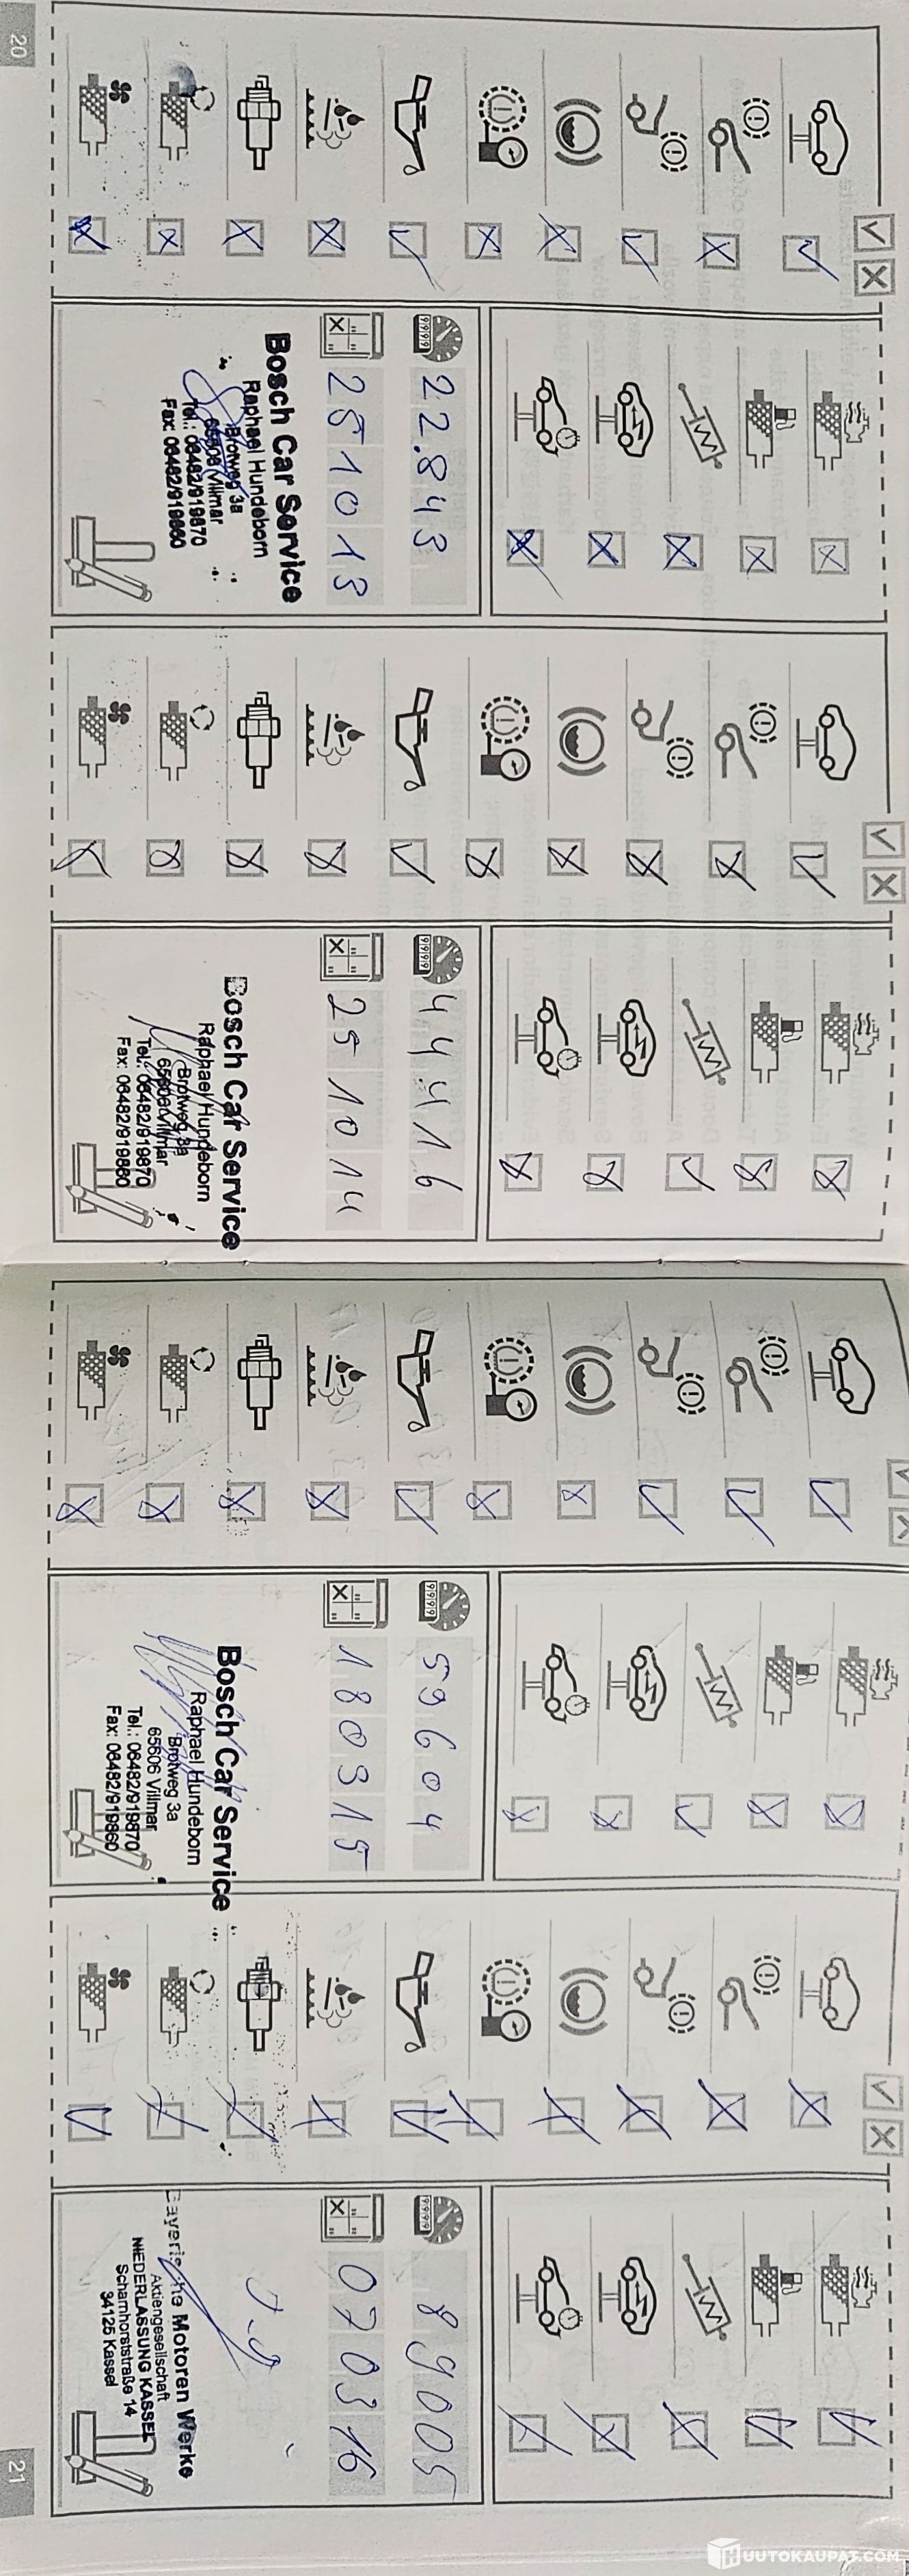 20
22.843
251013
Bosch Car Service
Raphael Hundeborn
Brotweg 3a
65606 Villmar
Tel.: 06482/919870
Fax: 06482/919860
44416
251014
Bosch Car Service
Raphael Hundeborn
Brotweg 3a
65606 Villmar
Tel.: 06482/919870
Fax: 06482/919860
59604
Bosch Car Service
Raphael Hundeborn
Brotweg 3a
65606 Villmar
Tel.: 06482/919870
Fax: 06482/919860
89005
070316
Bayerische Motoren Werke
Aktiengesellschaft
NIEDERLASSUNG KASSEL
Scharnhorststraße 14
34125 Kassel
21
HUUTOKAUPAT.COM